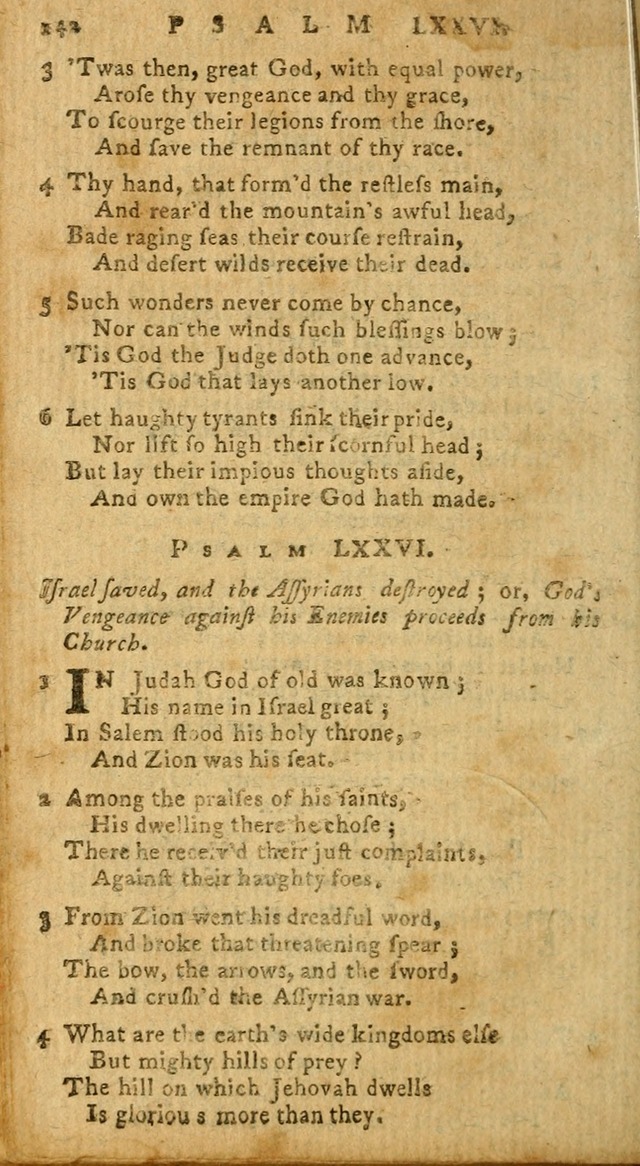 142 PSALM LXXVI.
3 'Twas then, great God, with equal power,
Aroſe thy vengeance and thy grace,
To ſcourge their legions from the ſhore,
And ſave the remnant of thy race.
4 Thy hand, that form'd the reſtleſs main,
And rear'd the mountain's awful head,
Bade raging ſeas their courſe reſtrain,
And deſert wilds receive their dead.
5 Such wonders never come by chance,
Nor can the winds ſuch bleſſings blow;
'Tis God the Judge doth one advance,
'Tis God that lays another low.
6 Let haughty tyrants ſink their pride,
Nor lift ſo high their ſcornful head;
But lay their impious thoughts aſide,
And own the empire God hath made.
PSALM LXXVI.
Iſrael ſaved, and the Aſſyrians deſtroyed; or, God's
Vengeance againſt his Enemies proceeds from his
Church.
1 IN Judah God of old was known;
His name in Iſrael great;
In Salem ſtood his holy throne,
And Zion was his ſeat.
2 Among the praiſes of his ſaints,
His dwelling there he choſe;
There he receiv'd their juſt complaints,
Againſt their haughty foes.
3 From Zion went his dreadful word,
And broke that threatening ſpear;
The bow, the arrows, and the ſword,
And cruſh'd the Aſſyrian war.
4 What are the earth's wide kingdoms elſe
But mighty hills of prey?
The hill on which Jehovah dwells
Is glorious more than they.